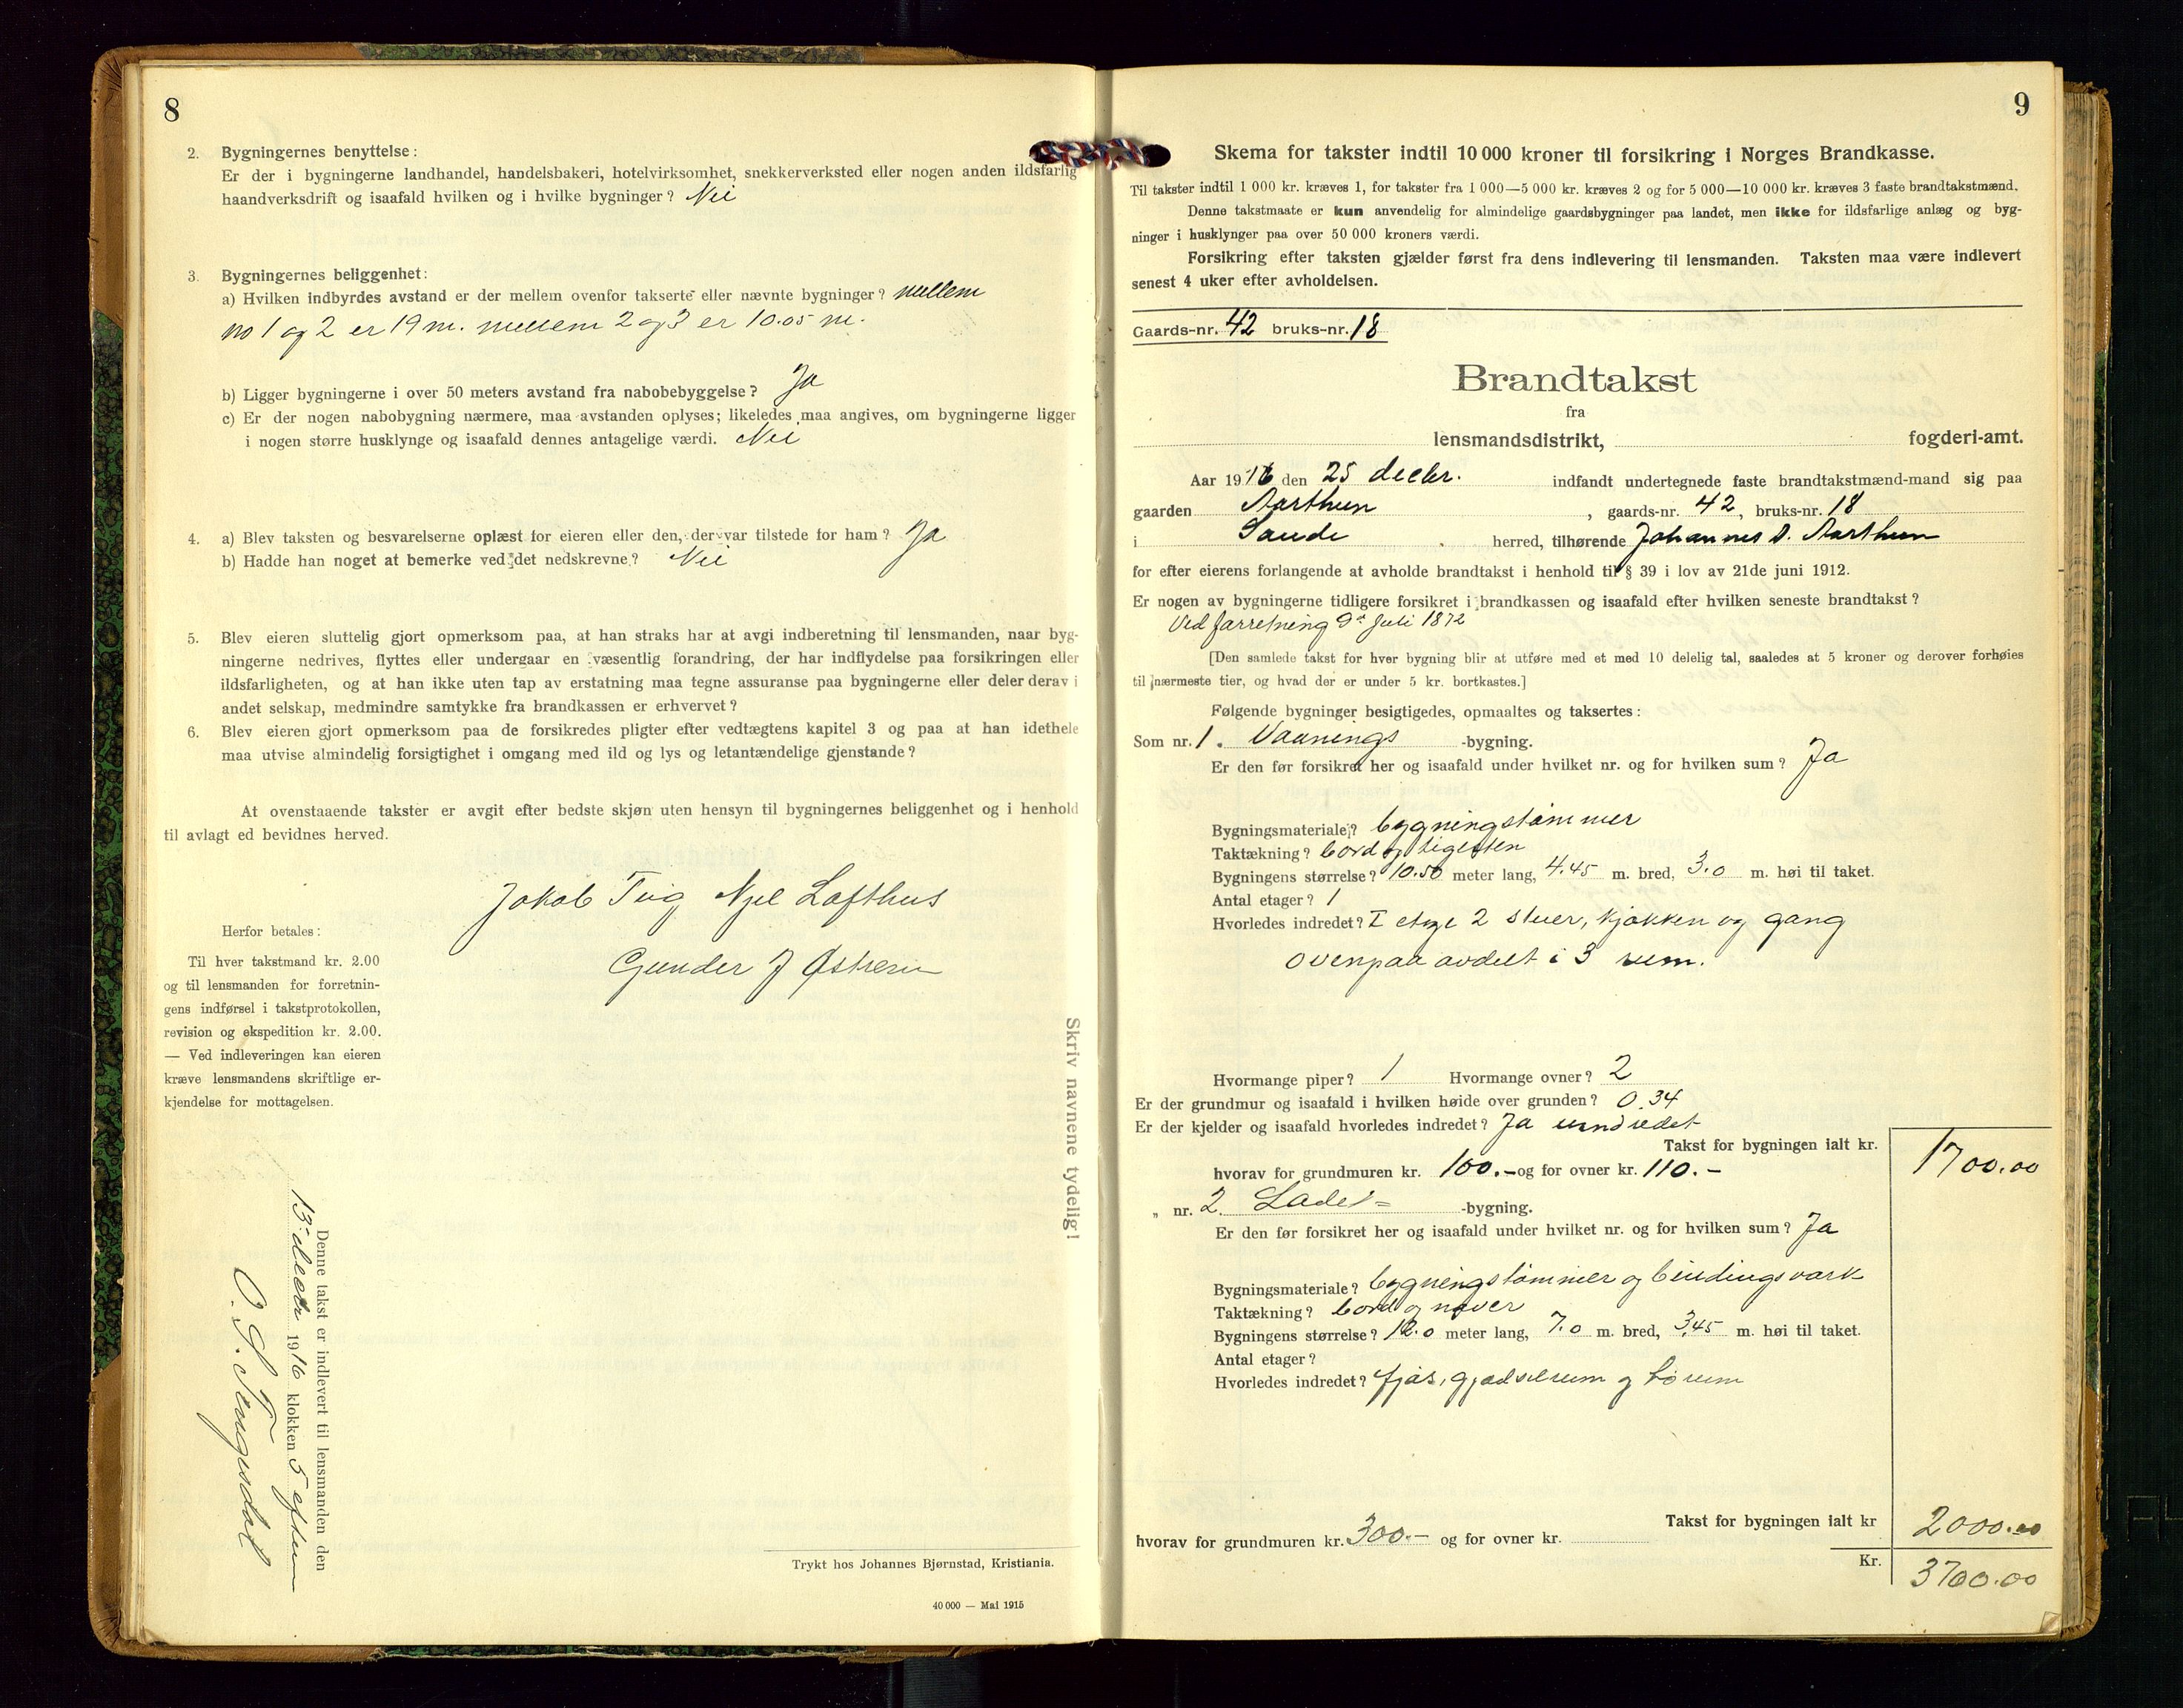 8
2. Bygningernes benyttelse:
Er der i bygningerne landhandel, handelsbakeri, hotelvirksomhet, snekkerverksted eller nogen anden ildsfarlig
haandverksdrift og isaafald hvilken og i hvilke bygninger? Nei
3. Bygningernes beliggenhet:
a) Hvilken indbyrdes avstand er der mellem ovenfor takserte eller nævnte bygninger? mellem
no 1 og 2 er 19 m. mellem 2 og 3 er 10.05 m.
b) Ligger bygningerne i over 50 meters avstand fra nabobebyggelse? Ja
c) Er der nogen nabobygning nærmere, maa avstanden oplyses; likeledes maa angives, om bygningerne ligger
i nogen større husklynge og isaafald dennes antagelige værdi. Nei
4. a) Blev taksten og besvarelserne oplæst for eieren eller den, der var tilstede for ham? Ja
b) Hadde han noget at bemerke ved det nedskrevne? Nei
5. Blev eieren sluttelig gjort opmerksom paa, at han straks har at avgi indberetning til lensmanden, naar byg-
ningerne nedrives, flyttes eller undergaar en væsentlig forandring, der har indflydelse paa forsikringen eller
ildsfarligheten, og at han ikke uten tap av erstatning maa tegne assuranse paa bygningerne eller deler derav i
andet selskap, medmindre samtykke fra brandkassen er erhvervet?
6. Blev eieren gjort opmerksom paa de forsikredes pligter efter vedtægtens kapitel 3 og paa at han idethele
maa utvise almindelig forsigtighet i omgang med ild og lys og letantændelige gjenstande?
At ovenstaaende takster er avgit efter bedste skjøn uten hensyn til bygningernes beliggenhet og i henhold
til avlagt ed bevidnes herved.
Jakob Tiig Njel Lofthus
Gunder J Østrem
Herfor betales:
Til hver takstmand kr. 2.00
og til lensmanden for forretnin-
gens indførsel i takstprotokollen,
revision og ekspedition kr. 2.00.
— Ved indleveringen kan eieren
kræve lensmandens skriftlige er-
kjendelse for mottagelsen.
Skriv navnene tydelig!
Denne takst er indlevert til lensmanden den
13 decbr 1916 klokken 5 efterm
O. S. Tengesdal
Trykt hos Johannes Bjørnstad, Kristiania.
40 000 — Mai 1915
9
Skema for takster indtil 10 000 kroner til forsikring i Norges Brandkasse.
Til takster indtil 1 000 kr. kræves 1, for takster fra 1 000—5 000 kr. kræves 2 og for 5 000—10 000 kr. kræves 3 faste brandtakstmænd.
Denne takstmaate er kun anvendelig for almindelige gaardsbygninger paa landet, men ikke for ildsfarlige anlæg og byg-
ninger i husklynger paa over 50 000 kroners værdi.
Forsikring efter taksten gjælder først fra dens indlevering til lensmanden. Taksten maa være indlevert
senest 4 uker efter avholdelsen.
Gaards-nr. 42 bruks-nr. 18
Brandtakst
fra
lensmandsdistrikt, fogderi-amt.
Aar 1916 den 25 decbr. indfandt undertegnede faste brandtakstmænd-mand sig paa
gaarden Aarthun, gaards-nr. 42, bruks-nr. 18
i Saude herred, tilhørende Johannes S. Aarthun
for efter eierens forlangende at avholde brandtakst i henhold til § 39 i lov av 21de juni 1912.
Er nogen av bygningerne tidligere forsikret i brandkassen og isaafald efter hvilken seneste brandtakst?
Ved forretning 9de Juli 1872
[Den samlede takst for hver bygning blir at utføre med et med 10 delelig tal, saaledes at 5 kroner og derover forhøies
til nærmeste tier, og hvad der er under 5 kr. bortkastes.]
Følgende bygninger besigtigedes, opmaaltes og taksertes:
Som nr. 1. Vaanings -bygning.
Er den før forsikret her og isaafald under hvilket nr. og for hvilken sum? Ja
Bygningsmateriale? bygningstømmer
Taktækning? bord og tigelsten
Bygningens størrelse? 10.50 meter lang, 4.45 m. bred, 3.0 m. høi til taket.
Antal etager? 1
Hvorledes indredet? I etage 2 stuer, kjøkken og gang
ovenpaa avdelt i 3 rum.
Hvormange piper? 1 Hvormange ovner? 2
Er der grundmur og isaafald i hvilken høide over grunden? 0.34
Er der kjelder og isaafald hvorledes indredet? Ja uindredet
Takst for bygningen ialt kr. 1700.00
hvorav for grundmuren kr. 100.— og for ovner kr. 110.—
„ nr. 2. Lade= -bygning.
Er den før forsikret her og isaafald under hvilket nr. og for hvilken sum? Ja
Bygningsmateriale? bygningstømmer og bindingsværk
Taktækning? bord og never
Bygningens størrelse? 12.0 meter lang, 7.0 m. bred, 3.45 m. høi til taket.
Antal etager?
Hvorledes indredet? fjøs, gjødselrum og hørum
Takst for bygningen ialt kr 2000.00
hvorav for grundmuren kr. 300.— og for ovner kr.
Kr. 3700.00